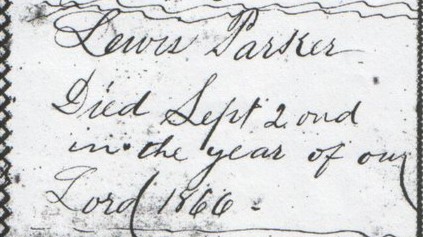 Lewis Parker
Died Sept 2ond
in the year of our
Lord 1866 -